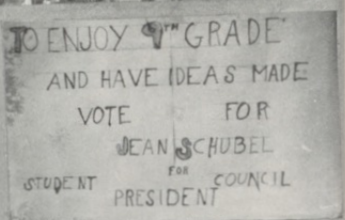 TO ENJOY 9TH GRADE
AND HAVE IDEAS MADE
VOTE FOR
JEAN SCHUBEL
FOR
STUDENT COUNCIL
PRESIDENT